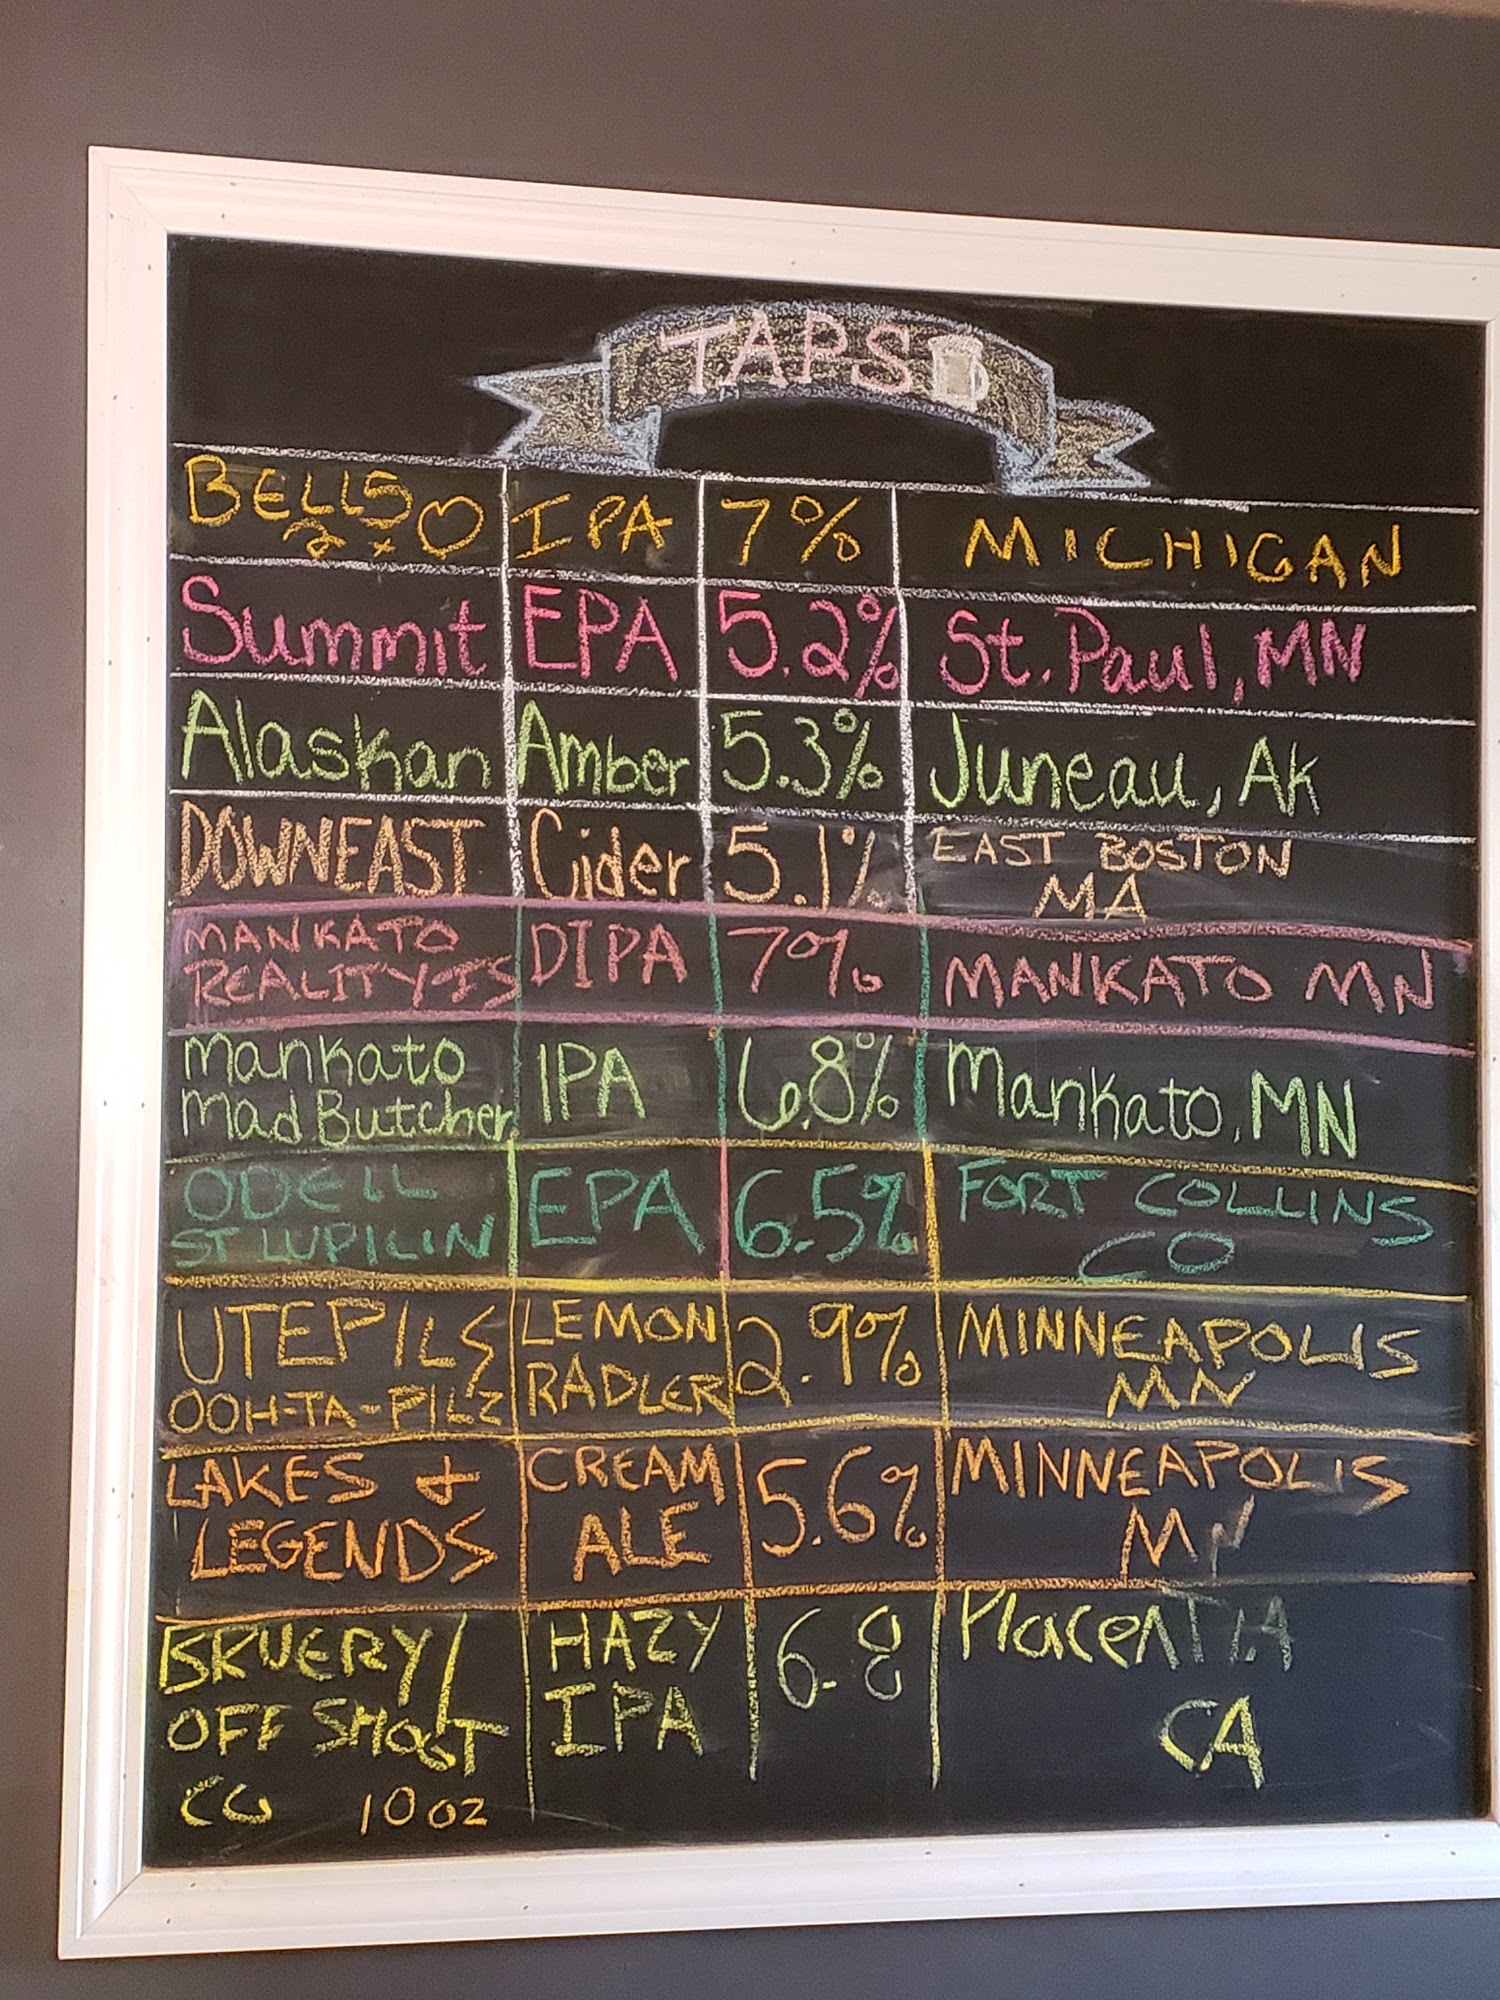 TAPS
BELLS IPA 7% MICHIGAN
2x ♡
Summit EPA 5.2% St. Paul, MN
Alaskan Amber 5.3% Juneau, AK
DOWNEAST Cider 5.1% EAST BOSTON
MA
MANKATO DIPA 7% MANKATO MN
REALITY IS
Mankato IPA 6.8% Mankato, MN
Mad Butcher
ODELL EPA 6.5% FORT COLLINS
ST LUPILIN CO
UTEPILS LEMON 2.9% MINNEAPOLIS
OOH-TA-PILZ RADLER MN
LAKES & CREAM 5.6% MINNEAPOLIS
LEGENDS ALE MN
BRUERY/ HAZY 6.8 PlacenTIA
OFF SHOOT IPA CA
CO 10 oz